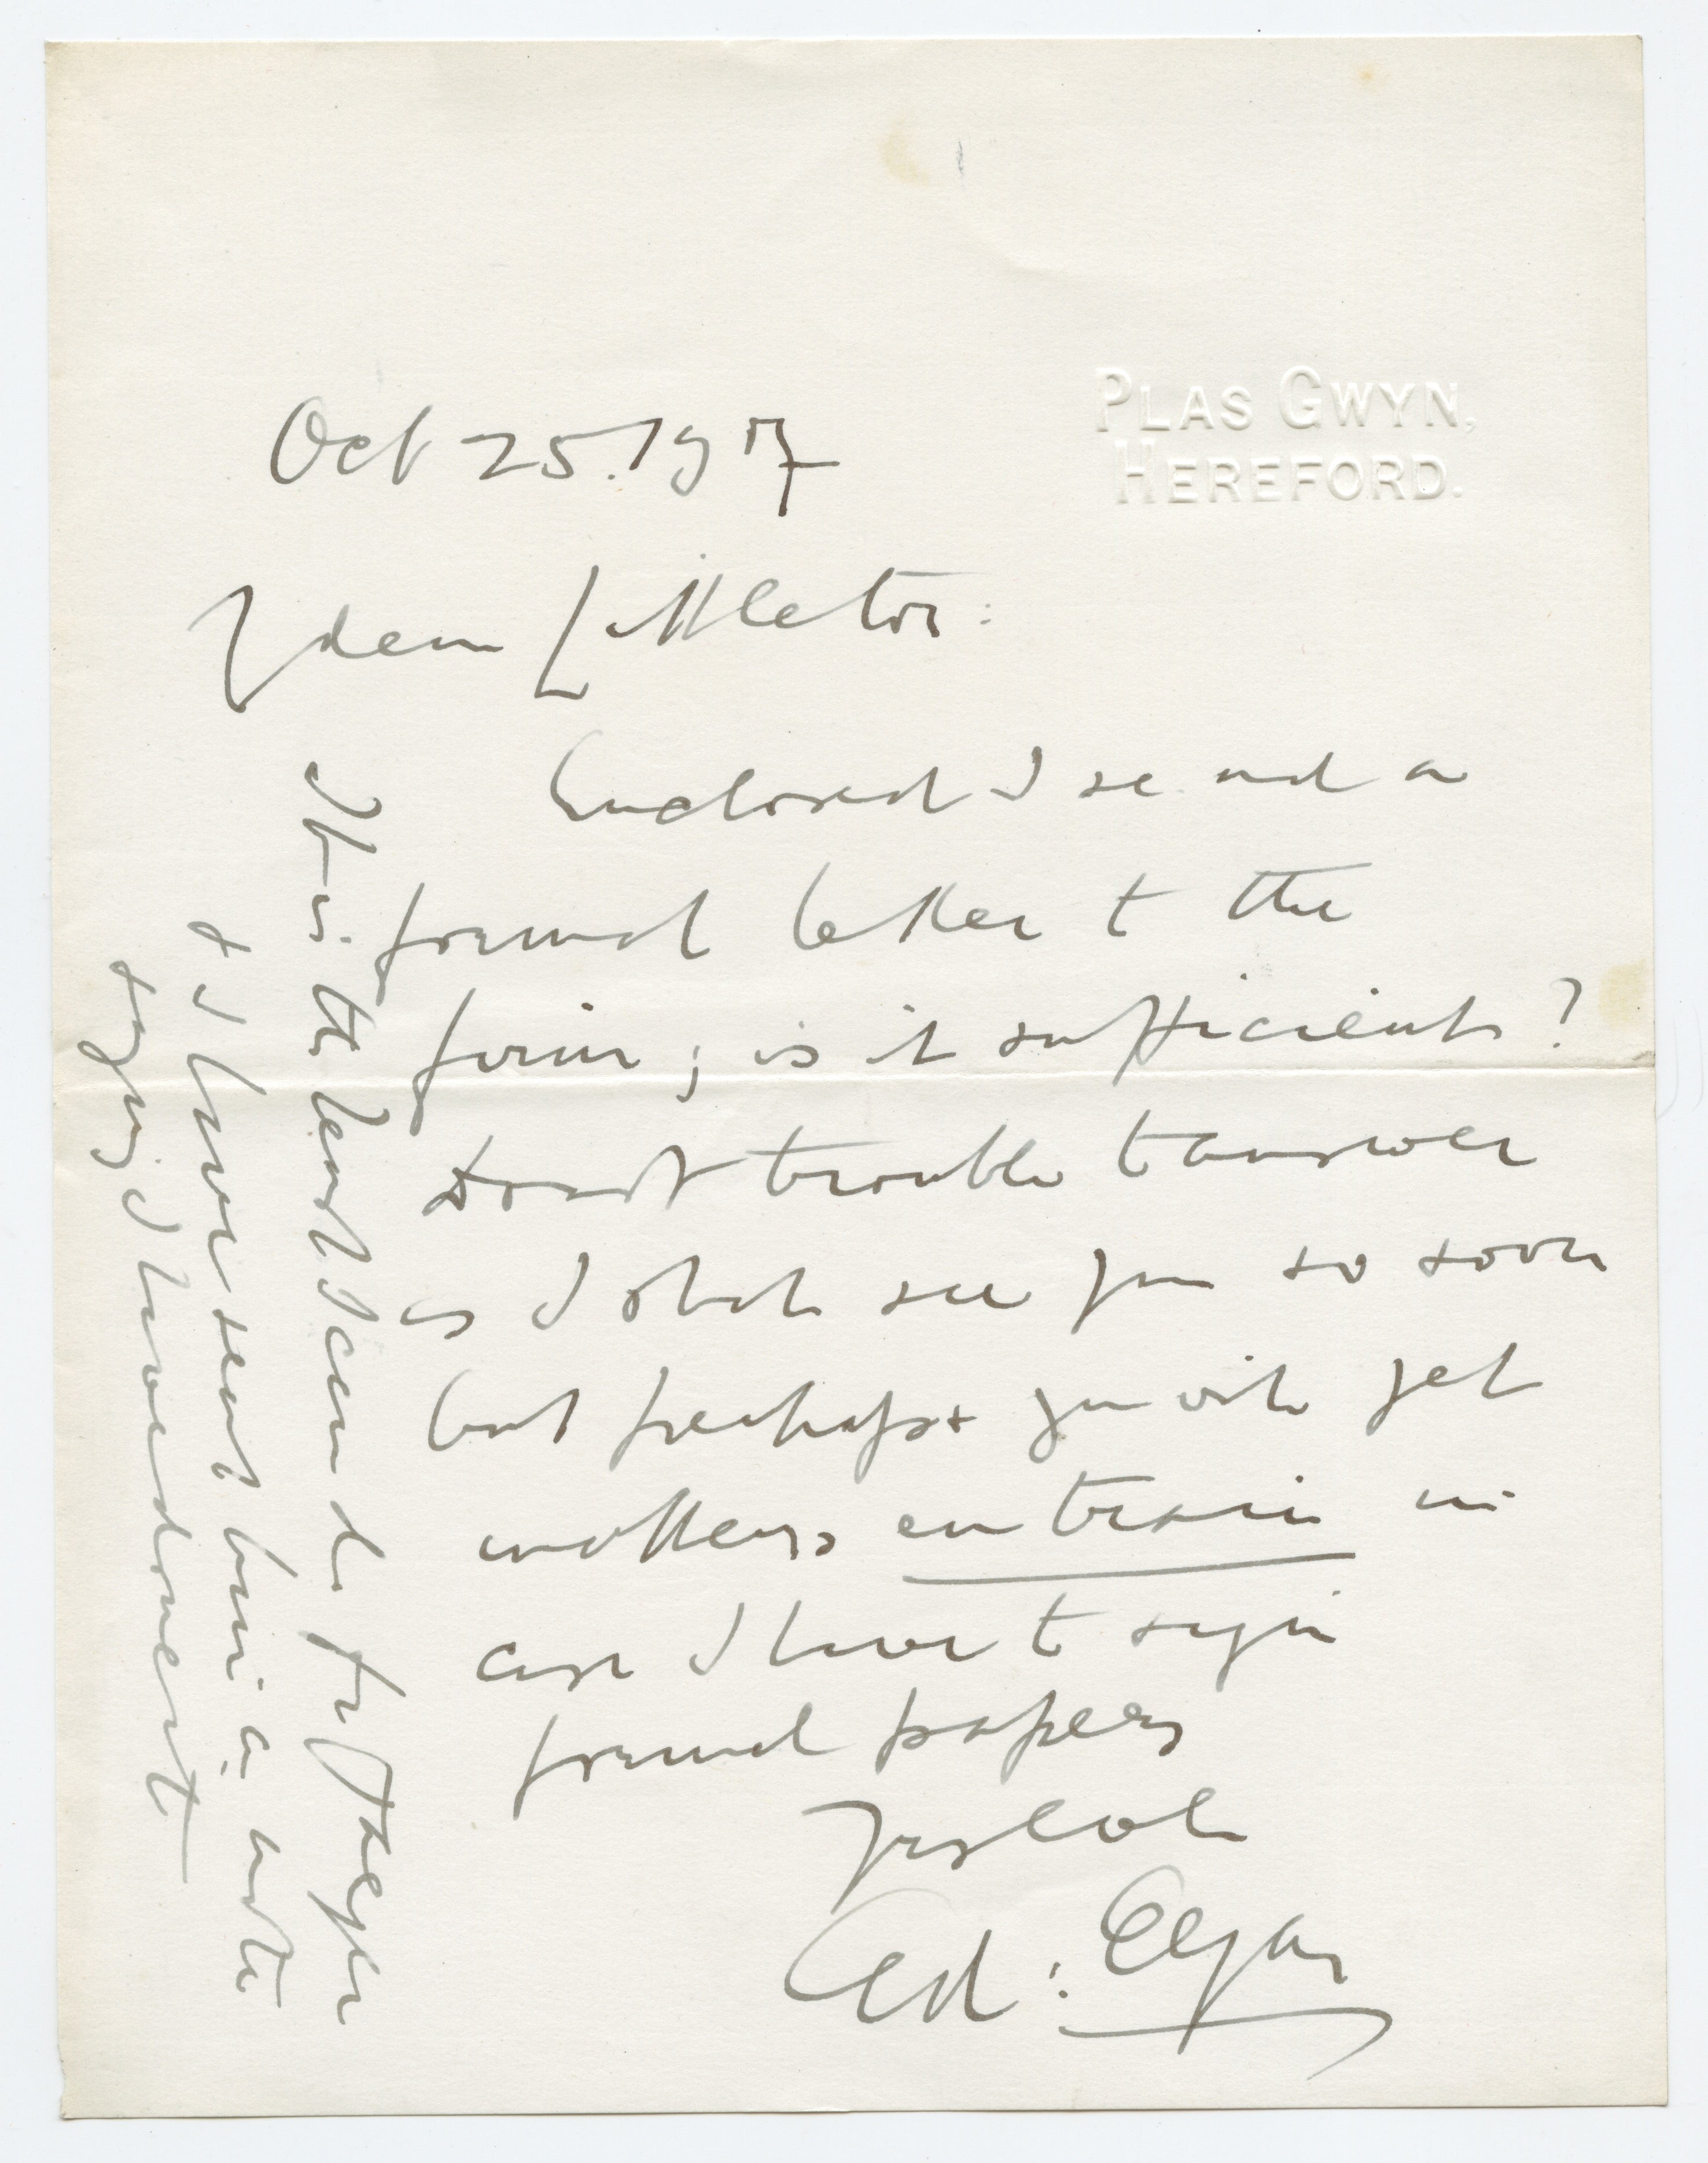 PLAS GWYN,
HEREFORD.
Oct 25.1907
My dear Littleton:
Enclosed I send a
formal letter to the
firm; is it sufficient?
Don't trouble to answer
as I shall see you so soon
but perhaps you will get
matters en train in
case I have to sign
formal papers
Yrs
Ed: Elgar
It is the least I can do for Jaeger
& I have sent him a note
saying I have done it